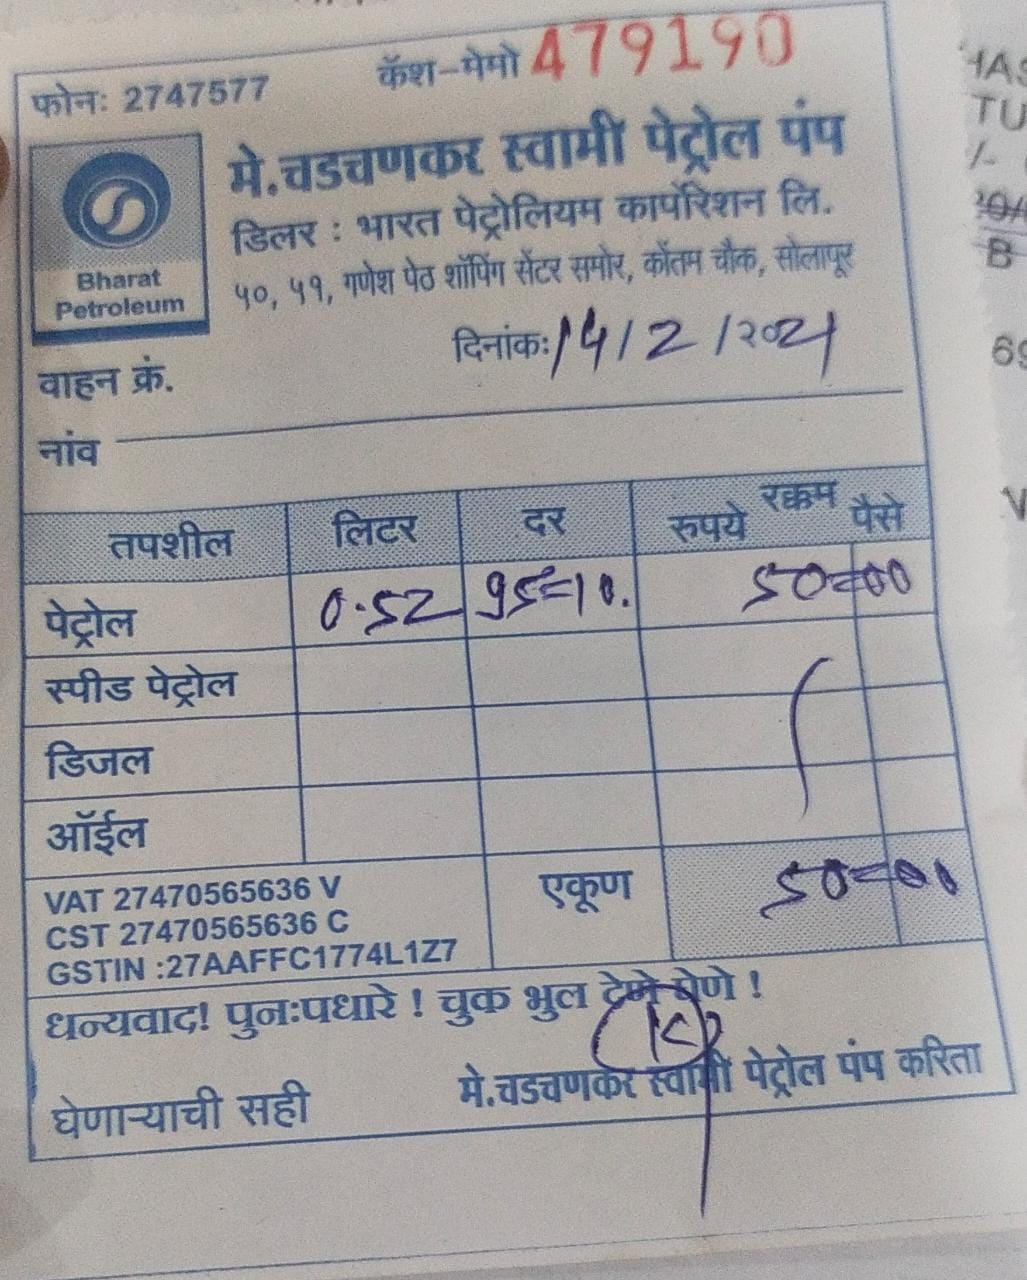 फोनः 2747577
कॅश-मेमो 479190
मे.चडचणकर स्वामी पेट्रोल पंप
डिलर : भारत पेट्रोलियम कार्पोरेशन लि.
५०, ५१, गणेश पेठ शॉपिंग सेंटर समोर, कोंतम चौक, सोलापूर
Bharat
Petroleum
दिनांकः 14/2/2021
वाहन क्रं.
नांव
तपशील लिटर दर रक्कम रुपये पैसे
पेट्रोल 0.52 95=10. 50=00
स्पीड पेट्रोल
डिजल
ऑईल
VAT 27470565636 V
CST 27470565636 C
GSTIN :27AAFFC1774L1Z7
एकूण 50=00
धन्यवाद! पुनःपधारे ! चुक भुल देणे घेणे !
मे.चडचणकर स्वामी पेट्रोल पंप करिता
घेणाऱ्याची सही
TU
B